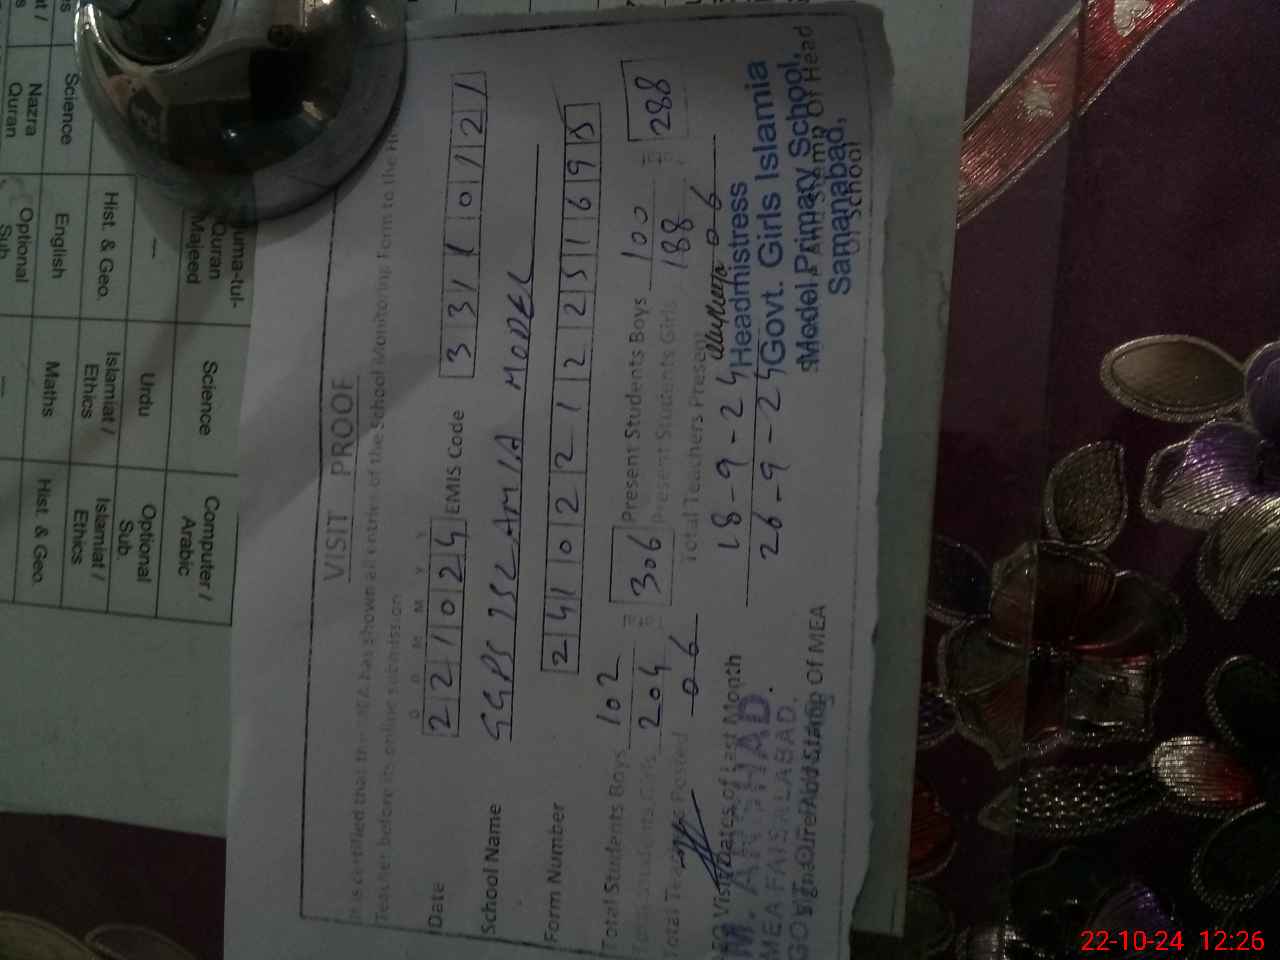 VISIT PROOF
It is certified that the MEA has shown all entries of the School Monitoring Form to the
Teacher before its online submission
D D M M Y Y
Date 2 2 1 0 2 4 EMIS Code 3 3 1 1 0 1 2 1
School Name GGPS ISLAMIA MODEL
Form Number 2 4 1 0 2 2 1 2 2 5 1 6 9 5
Total Students Boys 102 = 306 Present Students Boys 100 = 288
Total Students Girls 204 Present Students Girls 188
Total Teachers Posted 06 Total Teachers Present 06
Visit Dates of Last Month 18-9-24
26-9-24
Headmistress
Govt. Girls Islamia
Model Primary School,
Samanabad,
Stamp Of Head
School
M. ARSHAD.
MEA FAISALABAD.
Sign And Stamp Of MEA
Science
Nazra Quran
Juma-tul-Quran Majeed
Science
Computer / Arabic
—
Urdu
Optional Sub.
Hist. & Geo.
Islamiat / Ethics
Islamiat / Ethics
English
Maths
Hist. & Geo.
Optional Sub
22-10-24 12:26